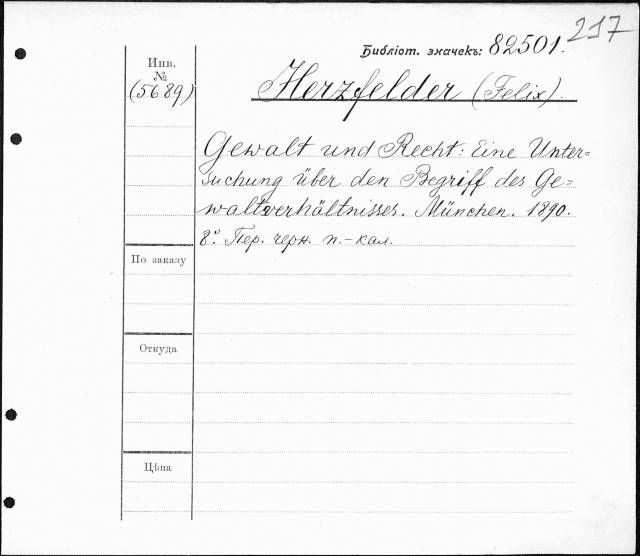 217
Библіот. значекъ: 82501.
Инв.
№
(5689)
Herzfelder (Felix).
Gewalt und Recht: Eine Unter=
suchung über den Begriff des Ge=
waltverhältnisses. München. 1890.
8° Пер. черн. п.-кал.
По заказу
Откуда
Цѣна